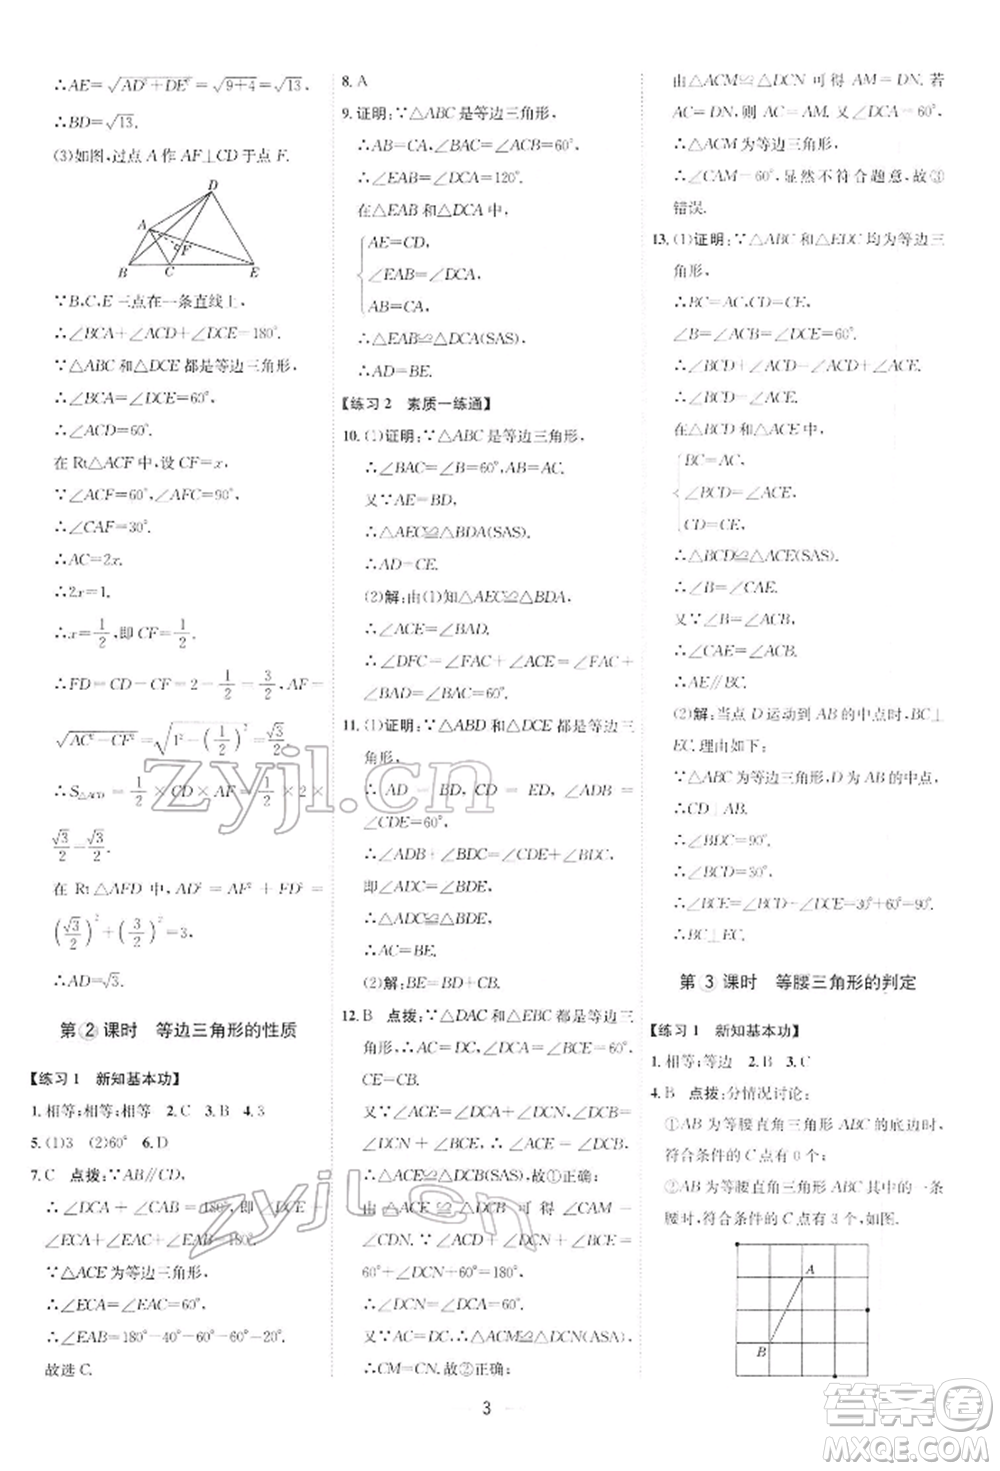 ∴AE=√(AD²+DE²)=√(9+4)=√13.
∴BD=√13.
(3)如图,过点 A 作 AF⊥CD 于点 F.
D
A
F
B
C
E
∵B,C,E 三点在一条直线上,
∴∠BCA+∠ACD+∠DCE=180°.
∵△ABC 和△DCE 都是等边三角形,
∴∠BCA=∠DCE=60°,
∴∠ACD=60°.
在 Rt△ACF 中,设 CF=x,
∵∠ACF=60°,∠AFC=90°,
∴∠CAF=30°.
∴AC=2x.
∴2x=1.
∴x=1/2,即 CF=1/2.
∴FD=CD-CF=2-1/2=3/2,AF=
√(AC²-CF²)=√(1²-(1/2)²)=√3/2.
∴S△ACD=1/2×CD×AF=1/2×2×
√3/2=√3/2.
在 Rt△AFD 中,AD²=AF²+FD²=
(√3/2)²+(3/2)²=3,
∴AD=√3.
第②课时 等边三角形的性质
【练习1 新知基本功】
1.相等;相等;相等 2.C 3.B 4.3
5.(1)3 (2)60° 6.D
7.C 点拨:∵AB∥CD,
∴∠DCA+∠CAB=180°,即∠DCE
+∠ECA+∠EAC+∠EAB=180°.
∵△ACE 为等边三角形,
∴∠ECA=∠EAC=60°,
∴∠EAB=180°-40°-60°-60°=20°.
故选 C.
8.A
9.证明:∵△ABC 是等边三角形,
∴AB=CA,∠BAC=∠ACB=60°,
∴∠EAB=∠DCA=120°.
在△EAB 和△DCA 中,
AE=CD,
∠EAB=∠DCA,
AB=CA,
∴△EAB≌△DCA(SAS)
∴AD=BE.
【练习2 素质一练通】
10.(1)证明:∵△ABC 是等边三角形,
∴∠BAC=∠B=60°,AB=AC.
又∵AE=BD,
∴△AEC≌△BDA(SAS)
∴AD=CE.
(2)解:由(1)知△AEC≌△BDA,
∴∠ACE=∠BAD.
∴∠DFC=∠FAC+∠ACE=∠FAC+
∠BAD=∠BAC=60°.
11.(1)证明:∵△ABD 和△DCE 都是等边三
角形,
∴AD=BD,CD=ED,∠ADB=
∠CDE=60°,
∴∠ADB+∠BDC=∠CDE+∠BDC,
即∠ADC=∠BDE,
∴△ADC≌△BDE.
∴AC=BE.
(2)解:BE=BD+CB.
12.B 点拨:∵△DAC 和△EBC 都是等边三
角形,∴AC=CD,
CE=BC,∠ACD=
∠ECB=60°.
又∵∠ACE=∠ACD+∠DCE,
∠DCB=∠DCE+∠ECB,
∴∠ACE=∠DCB,
∴△ACE≌△DCB(SAS),故①正确;
由△ACE≌△DCB 可得∠CAM=
∠CDN. ∵∠ACD=∠ECB=
60°+∠DCN+∠DCN=180°,
∴∠DCN=∠DCA=60°,
∴△ACM≌△DCN(ASA).
∴CM=CN.故②正确;
由△ACM≌△DCN 可得 AM=DN.若
AC=DN,则 AC=AM.又∠DCA=60°,
∴△ACM 为等边三角形,
∴∠CAM=60°,显然不符合题意,故③
错误.
13.(1)证明:∵△ABC 和△EDC 均为等边三
角形,
∴BC=AC,CD=CE,
∠B=∠ACB=∠DCE=60°.
∴∠BCD+∠ACD=∠ACD+∠ACE.
∴∠BCD=∠ACE.
在△BCD 和△ACE 中,
BC=AC,
∠BCD=∠ACE,
CD=CE,
∴△BCD≌△ACE(SAS).
∴∠B=∠CAE.
又∵∠B=∠ACB,
∴∠CAE=∠ACB.
∴AE∥BC.
(2)解:当点 D 运动到 AB 的中点时,BC⊥
EC.理由如下:
∵△ABC 为等边三角形,D 为 AB 的中点,
∴CD⊥AB.
∴∠BDC=90°.
∵∠B=60°,
∴∠BCD=30°.
∴∠BCE=∠BCD+∠DCE=30°+60°=90°.
∴BC⊥EC.
第③课时 等腰三角形的判定
【练习1 新知基本功】
1.相等;等边 2.B 3.C
4.B 点拨:分情况讨论:
①AB 为等腰直角三角形 ABC 的底边时,
符合条件的 C 点有 0 个;
②AB 为等腰直角三角形 ABC 其中的一条
腰时,符合条件的 C 点有 3 个,如图.
A
B
3
zyjl.cn
zyjl.cn
答案圈
MXQE.COM